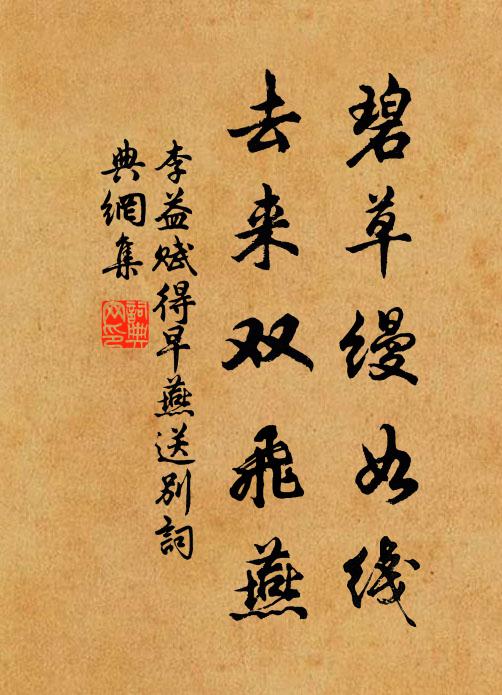 碧草缦如线
去来双飞燕
李益赋得早燕送别詞
典網集
詞典
网印